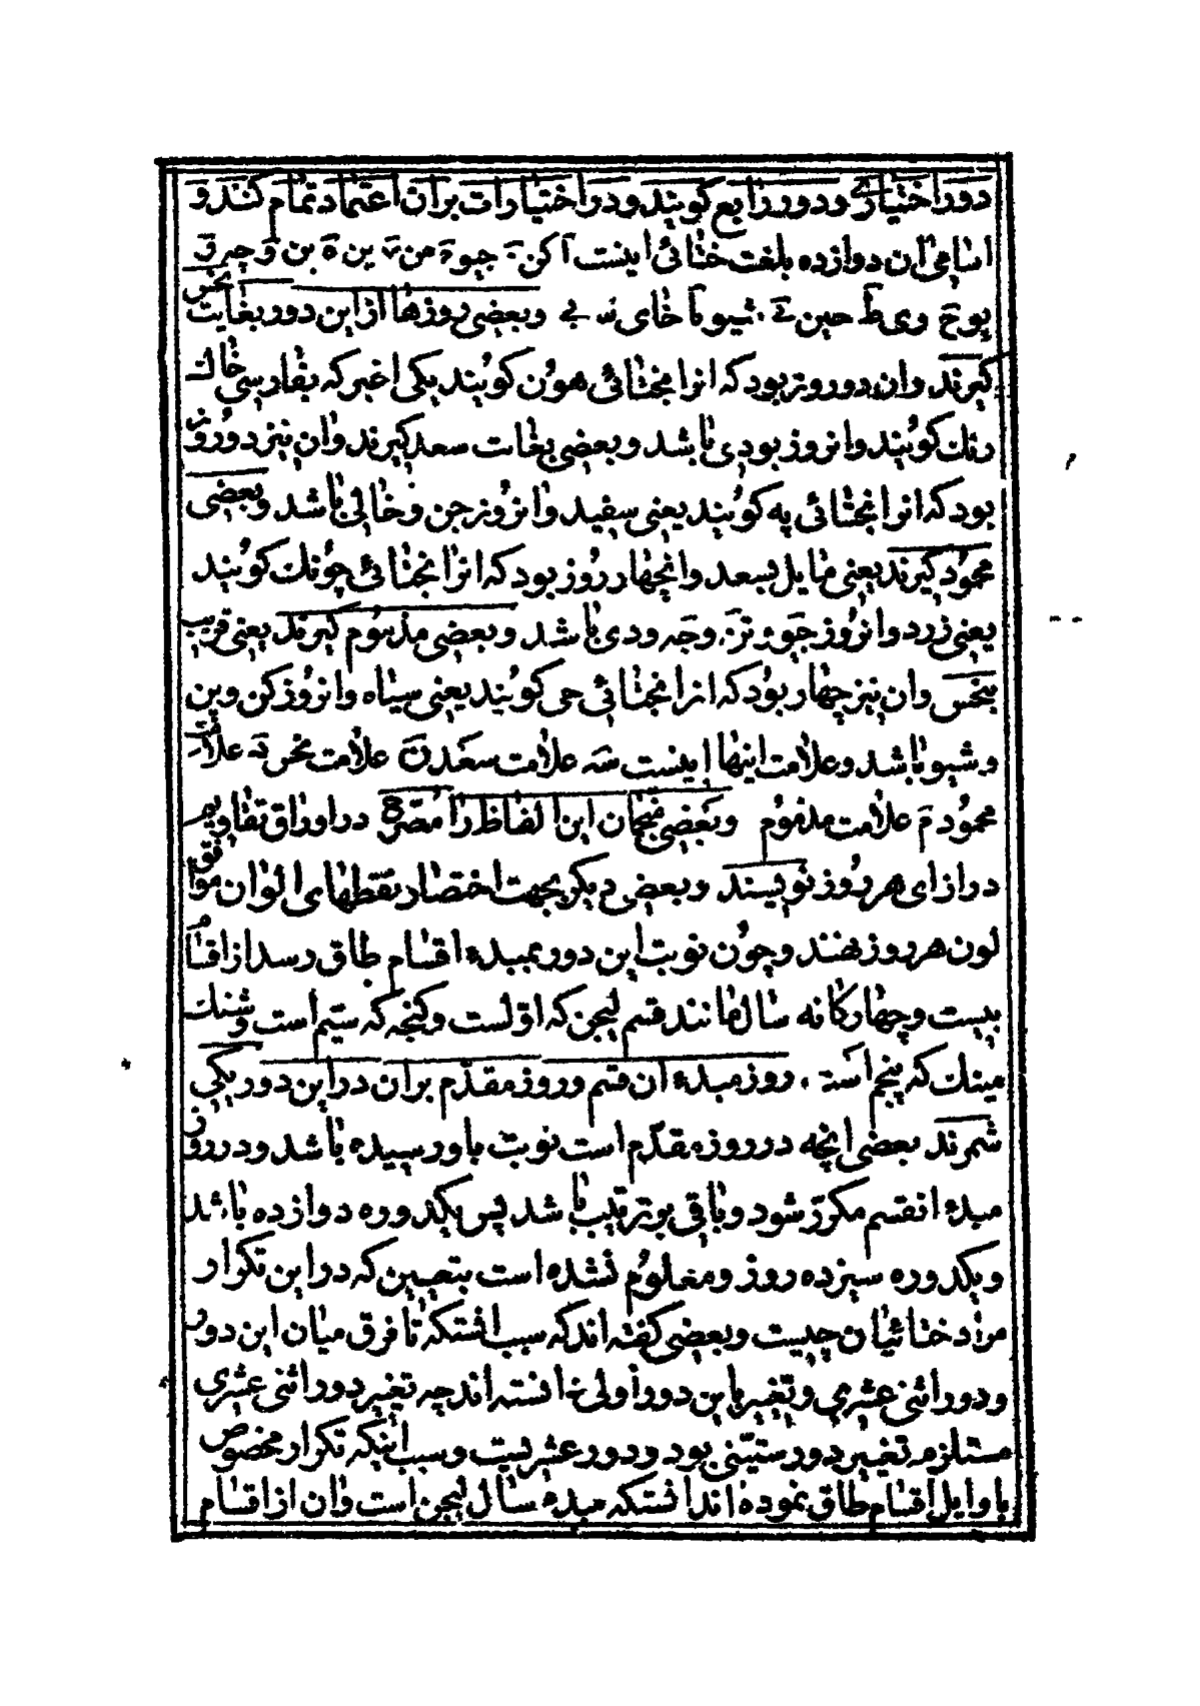 دور اختیاری و دور رابع کویند و در اختیارات بران اعتماد تمام کنند و
اسامی ان دوازده بلغت ختائی اینست آ کن ب چیو ج من د ین ه بن و چر ز
پو ح وی ط حین ی شیو یا خای یب بی و بعضی روزها از این دور بغایت نحس
کیرند و ان دو روز بود که انرا بختائی هون کویند یکی اغبر که بفارسی خاک
رنک کویند و انروز بودی باشد و بعضی بغایت سعد کیرند و ان نیز دو روز
بود که انرا بختائی په کویند یعنی سفید و انروز جن و خای باشد و بعضی
محمود کیرند یعنی مایل بسعد و انچهار روز بود که انرا بختائی خونک کویند
یعنی زرد و انروز چیو و تر و چه ودی باشد و بعضی مذموم کیرند یعنی قریب
بنحس و ان نیز چهار بود که انرا بختائی حی کویند یعنی سیاه و انروز کن و ین
و شیو باشد و علامت اینها اینست سه علامت سعد ن علامت نحس به علامت
محمود م علامت مذموم و بعضی منجمان این الفاظ را مصرح در اوراق تقاویم
در ازای هر روز نویسند و بعضی دیکر بجهت اختصار نقطهای الوان موافق
لون هر روز نهند و چون نوبت این دور بمبدء اقسام طاق رسد از اقسام
بیست و چهار کانه سال مانند قسم لیجن که اولست و کنجه که سیم است و شنک
مینک که پنجم است روز مبدء ان قسم و روز مقدم بران در این دور یکی
شمرند بعضی انچه در روز مقدم است نوبت باو رسیده باشد و در روز
مبدء انقسم مکرر شود و باقی بترتیب باشد پس یکدوره دوازده باشد
و یکدوره سیزده روز و معلوم نشده است بتعیین که در این تکرار
مراد ختائیان چیست و بعضی کفته اند که سبب انستکه تا فرق میان این دور
و دور اثنی عشری و تغییر باین دور اولی دانسته اند چه تغیر دور اثنی عشری
مستلزم تغییر دور ستینی بود و دور عشر نیست و سبب اینکه تکرار مخصوص
باوایل اقسام طاق نموده اند انستکه مبدء سال لیجن است و ان از اقسام